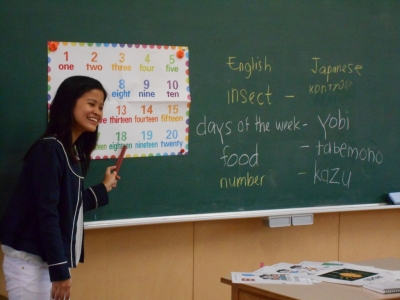 1 2 3 4 5
one two three four five
8 9 10
eight nine ten
13 14 15
thirteen fourteen fifteen
18 19 20
een eighteen nineteen twenty
English Japanese
insect -
days of the week - Yobi
food - tabemono
number - kazu